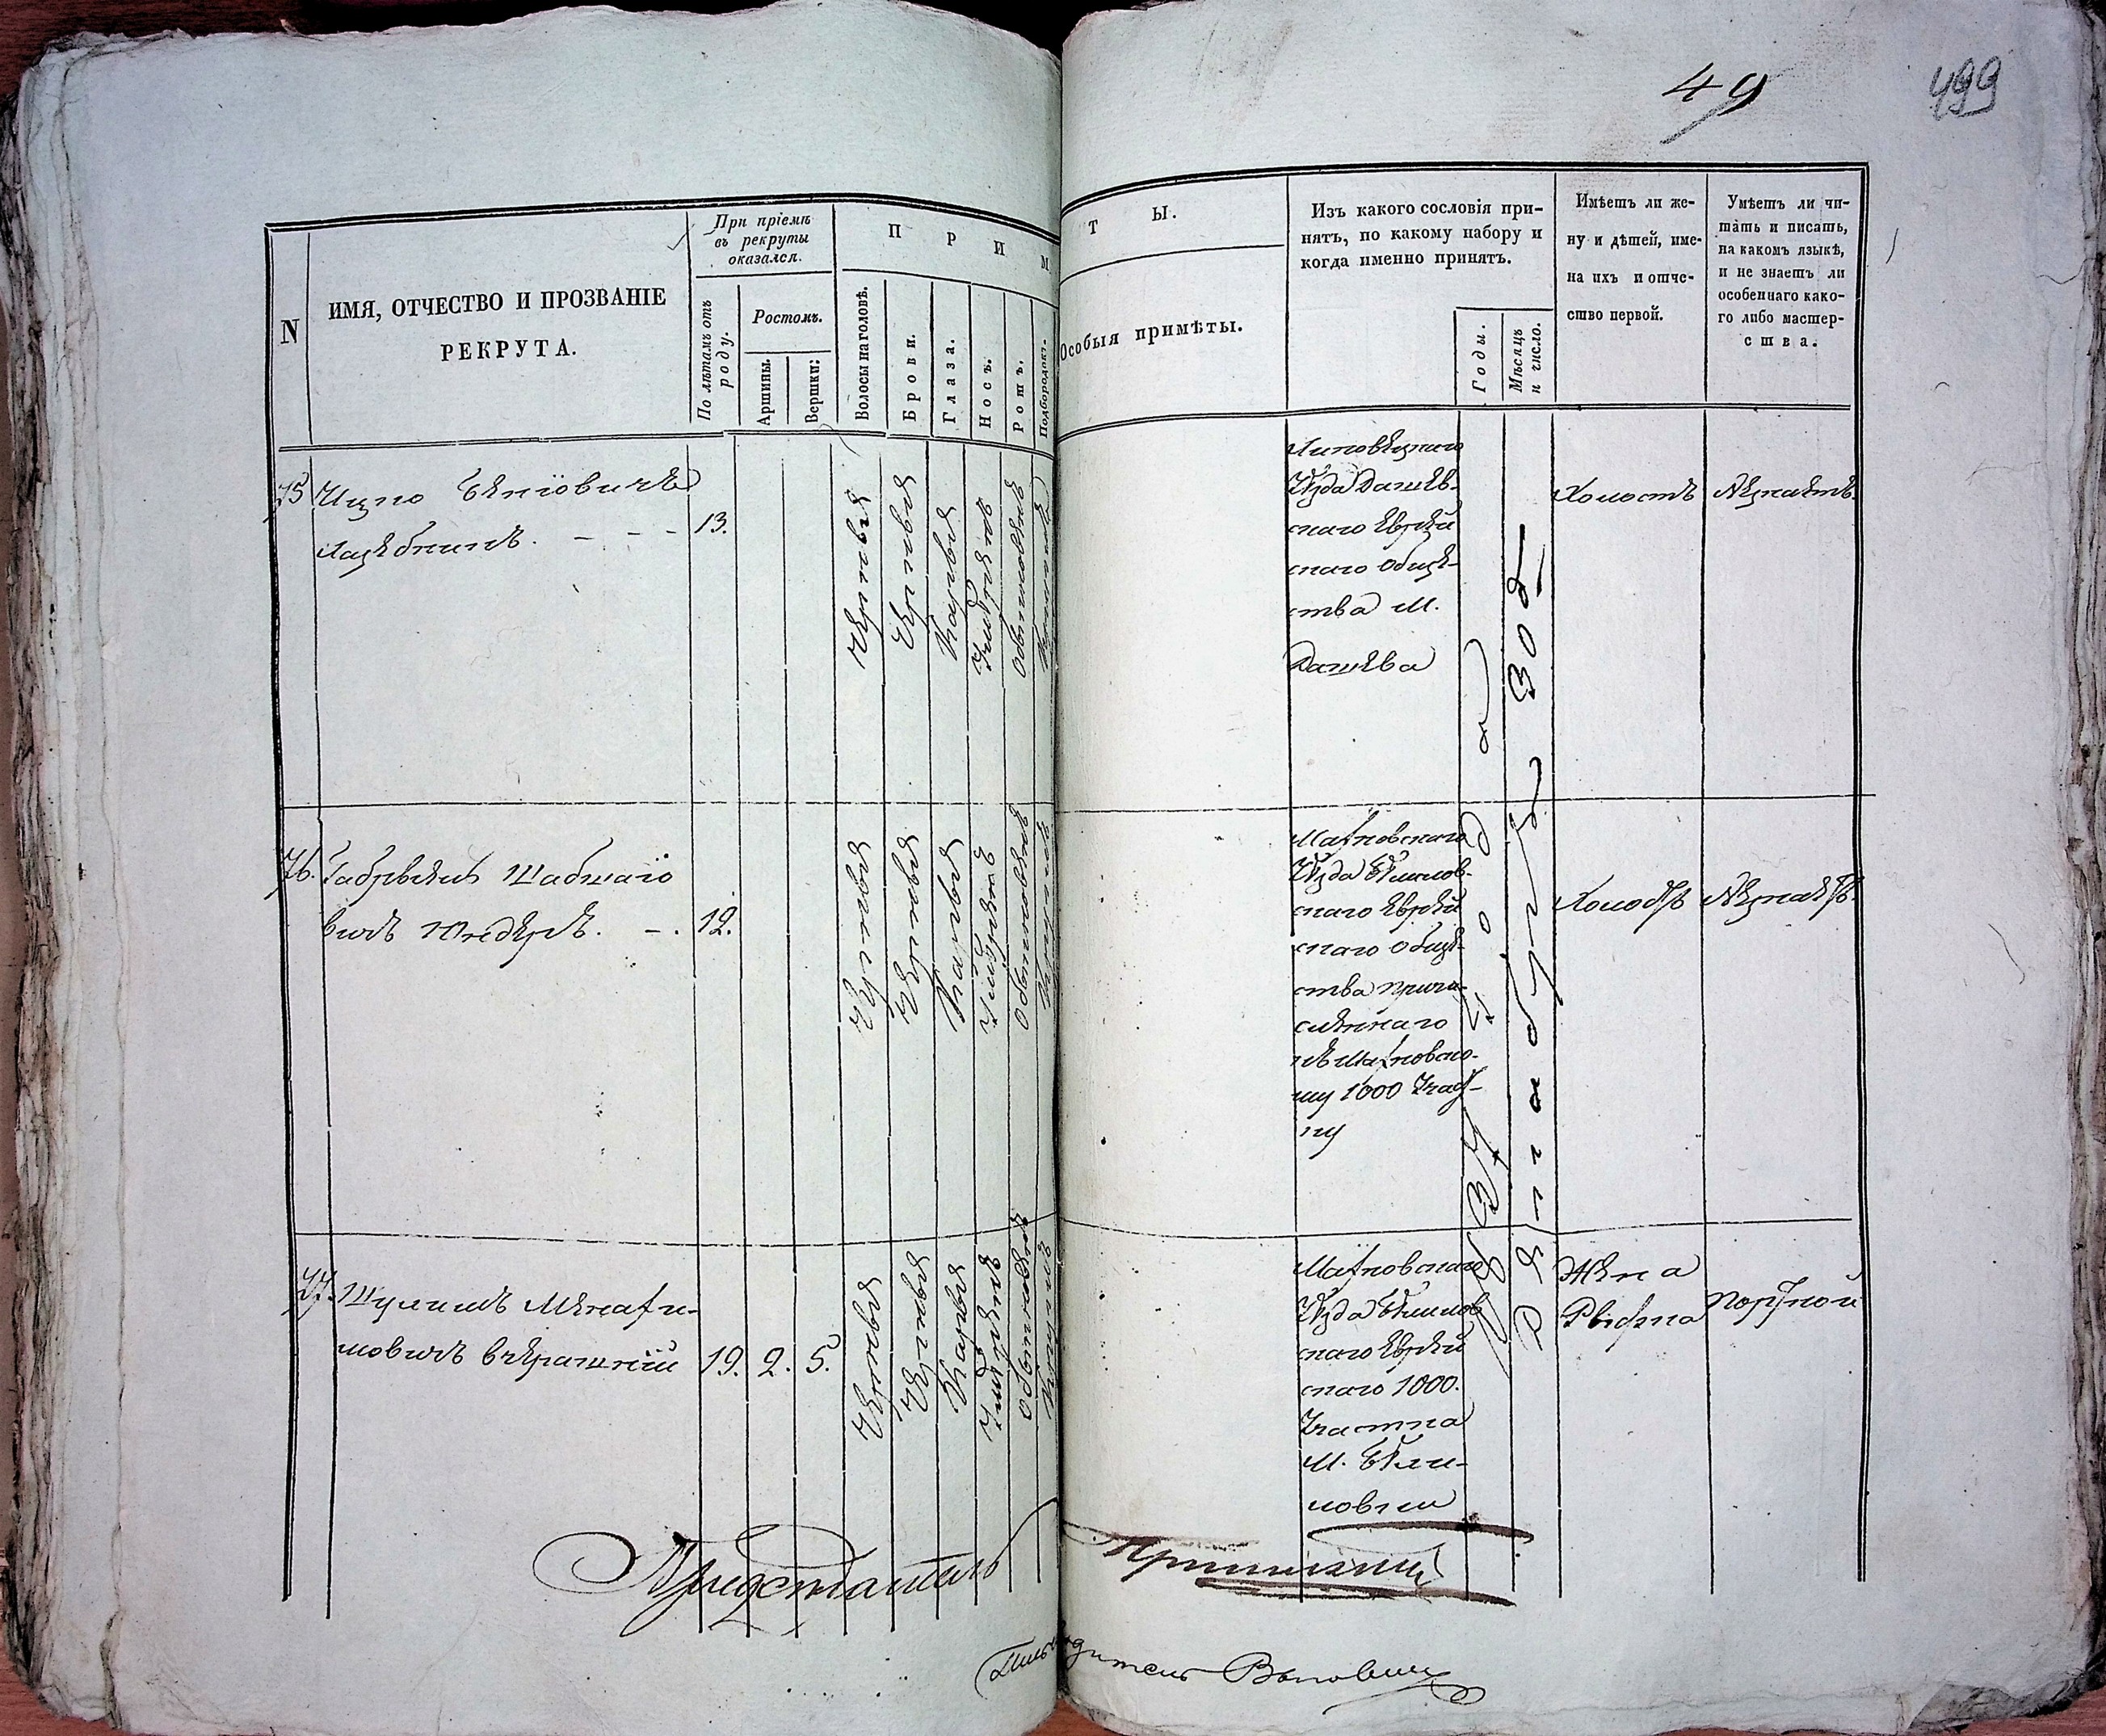 49
499
N
ИМЯ, ОТЧЕСТВО И ПРОЗВАНІЕ
РЕКРУТА.
При пріемѣ
въ рекруты
оказался.
По лѣтамъ отъ
роду.
Ростомъ.
Аршины.
Вершки:
П Р И М
Волосы на головѣ.
Брови.
Глаза.
Носъ.
Ротъ.
Подбородокъ.
Т Ы.
Особыя примѣты.
Изъ какого сословія при-
нятъ, по какому набору и
когда именно принятъ.
Годы.
Мѣсяцъ
и число.
Имѣетъ ли же-
ну и дѣтей, име-
на ихъ и отче-
ство первой.
Умѣетъ ли чи-
тать и писать,
на какомъ языкѣ,
и не знаетъ ли
особеннаго како-
го либо мастер-
ства.
75
Ицко Беніовичъ
Лазебникъ.
13.
Черныя
Черныя
Карыя
Умѣренъ
Обыкновенъ
Липовецкаго
Уѣзда Дашев-
скаго Еврей
скаго Обще-
ства М.
Дашева
Холостъ
Незнаетъ.
76.
Габріель Шабшаіо
вичъ Юндеръ.
12.
Черныя
Черныя
Карыя
Умѣренъ
Обыкновенъ
Махновскаго
Уѣзда Бѣлилов-
скаго Еврей
скаго Обще-
ства причи-
сленнаго
къ Махновско-
му 1000 Участ-
ку
Холостъ
Незнаетъ.
77.
Шулимъ Менахи-
мовичъ Вчерашній
19.
2.
5.
Черныя
Черныя
Карыя
Умѣренъ
Обыкновенъ
Махновскаго
Уѣзда Бѣлилов
скаго Еврей
скаго 1000.
Участка
М. Бѣли-
ловки
Жена
Рыфка
Портной
года
30е
Предсѣдатель